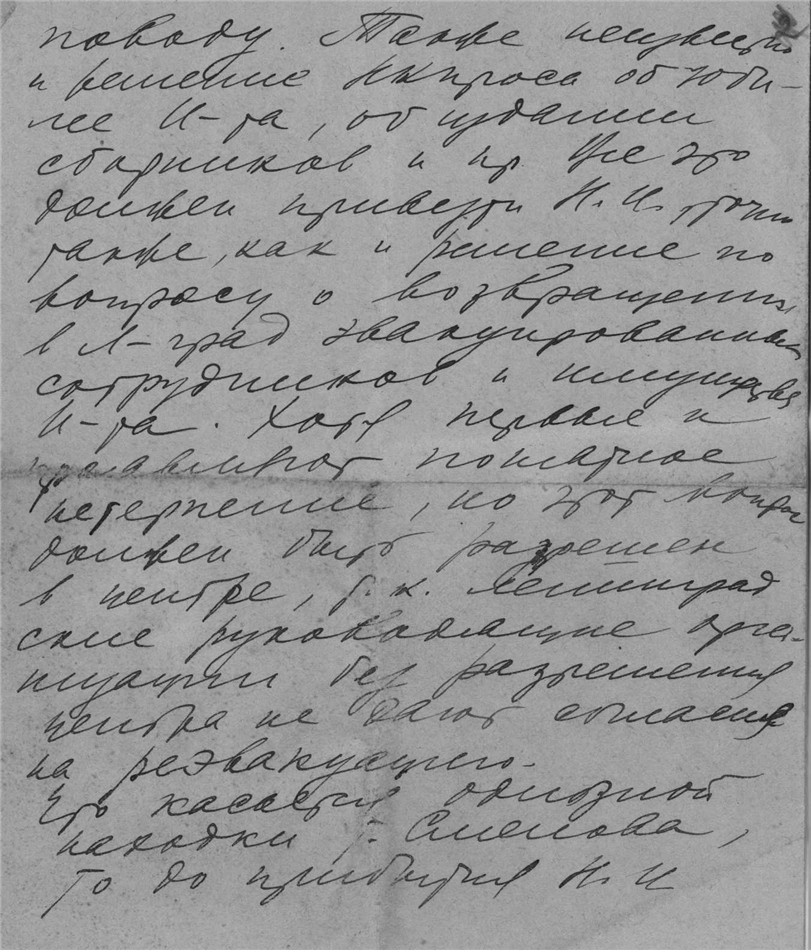 поводу. Также неизвестно
и решение Нкпроса об юби-
лее И-та, об издании
сборников и пр. Все это
должен привезти Н. И. точно
также, как и решение по
вопросу о возвращении
в Л-град эвакуированных
сотрудников и имущества
И-та. Хотя первые и
проявляют понятное
нетерпение, но этот вопрос
должен быть разрешен
в центре, т. к. ленинград
ские руководящие орга-
низации без разрешения
центра не дают согласия
на реэвакуацию.
Что касается одиозной
находки т.
то до прибытия Н. И